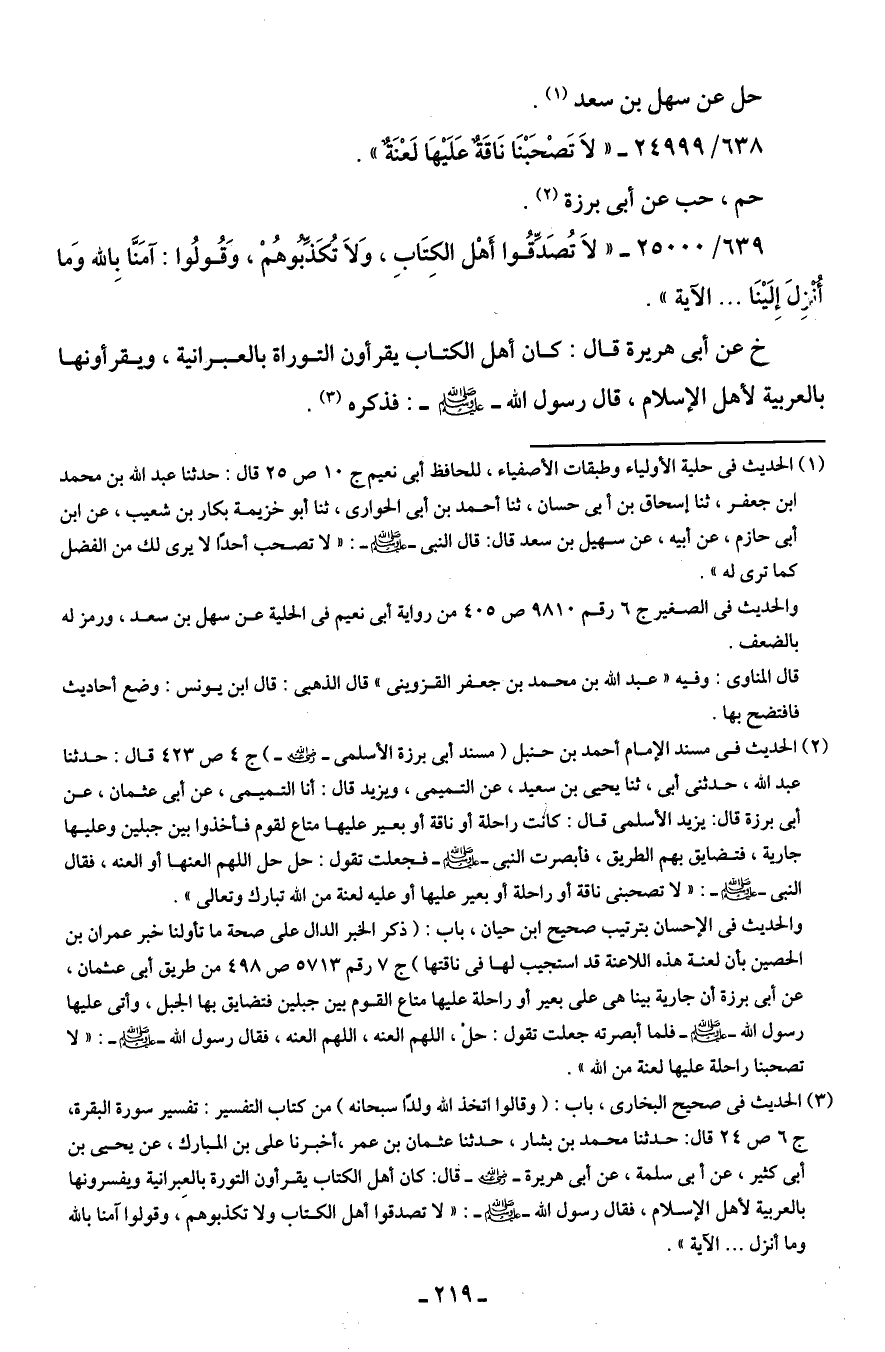 حل عن سهل بن سعد (١) .
٦٣٨/ ٢٤٩٩٩ ـ « لاَ تَصْحَبْنَا نَاقَةٌ عَلَيْهَا لَعْنَةٌ » .
حم ، حب عن أبى برزة (٢) .
٦٣٩/ ٢٥٠٠٠ ـ « لاَ تُصَدِّقُوا أَهْلَ الكِتَابِ ، وَلاَ تُكَذِّبُوهُمْ ، وَقُولُوا : آمَنَّا بِالله وَمَا
أُنْزِلَ إِلَيْنَا ... الآية » .
خ عن أبى هريرة قال : كان أهل الكتاب يقرأون التوراة بالعبرانية ، ويقرأونها
بالعربية لأهل الإسلام ، قال رسول الله ـ ﷺ ـ : فذكره (٣) .
(١) الحديث فى حلية الأولياء وطبقات الأصفياء ، للحافظ أبى نعيم ج ١٠ ص ٢٥ قال : حدثنا عبد الله بن محمد
ابن جعفر ، ثنا إسحاق بن أبى حسان ، ثنا أحمد بن أبى الحوارى ، ثنا أبو خزيمة بكار بن شعيب ، عن ابن
أبى حازم ، عن أبيه ، عن سهيل بن سعد قال: قال النبى ـ ﷺ ـ : « لا تصحب أحدًا لا يرى لك من الفضل
كما ترى له » .
والحديث فى الصغير ج ٦ رقم ٩٨١٠ ص ٤٠٥ من رواية أبى نعيم فى الحلية عن سهل بن سعد ، ورمز له
بالضعف .
قال المناوى : وفيه « عبد الله بن محمد بن جعفر القزوينى » قال الذهبى : قال ابن يونس : وضع أحاديث
فافتضح بها .
(٢) الحديث فى مسند الإمام أحمد بن حنبل ( مسند أبى برزة الأسلمى ـ رضي الله عنه ـ ) ج ٤ ص ٤٢٣ قال : حدثنا
عبد الله ، حدثنى أبى ، ثنا يحيى بن سعيد ، عن التميمى ، ويزيد قال : أنا التميمى ، عن أبى عثمان ، عن
أبى برزة قال: يزيد الأسلمى قال : كانت راحلة أو ناقة أو بعير عليها متاع لقوم فأخذوا بين جبلين وعليها
جارية ، فتضايق بهم الطريق ، فأبصرت النبى ـ ﷺ ـ فجعلت تقول : حل حل اللهم العنها أو العنه ، فقال
النبى ـ ﷺ ـ : « لا تصحبنى ناقة أو راحلة أو بعير عليها أو عليه لعنة من الله تبارك وتعالى » .
والحديث فى الإحسان بترتيب صحيح ابن حيان ، باب : ( ذكر الخبر الدال على صحة ما تأولنا خبر عمران بن
الحصين بأن لعنة هذه اللاعنة قد استجيب لها فى ناقتها ) ج ٧ رقم ٥٧١٣ ص ٤٩٨ من طريق أبى عثمان ،
عن أبى برزة أن جارية بينا هى على بعير أو راحلة عليها متاع القوم بين جبلين فتضايق بها الجبل ، وأتى عليها
رسول الله ـ ﷺ ـ فلما أبصرته جعلت تقول : حلْ ، اللهم العنه ، اللهم العنه ، فقال رسول الله ـ ﷺ ـ : « لا
تصحبنا راحلة عليها لعنة من الله » .
(٣) الحديث فى صحيح البخارى ، باب : ( وقالوا اتخذ الله ولدًا سبحانه ) من كتاب التفسير : تفسير سورة البقرة،
ج ٦ ص ٢٤ قال: حدثنا محمد بن بشار ، حدثنا عثمان بن عمر ،أخبرنا على بن المبارك ، عن يحيى بن
أبى كثير ، عن أبى سلمة ، عن أبى هريرة ـ رضي الله عنه ـ قال: كان أهل الكتاب يقرأون التورة بالعبرانية ويفسرونها
بالعربية لأهل الإسلام ، فقال رسول الله ـ ﷺ ـ : « لا تصدقوا أهل الكتاب ولا تكذبوهم ، وقولوا آمنا بالله
وما أنزل ... الآية » .
ـ ٢١٩ ـ